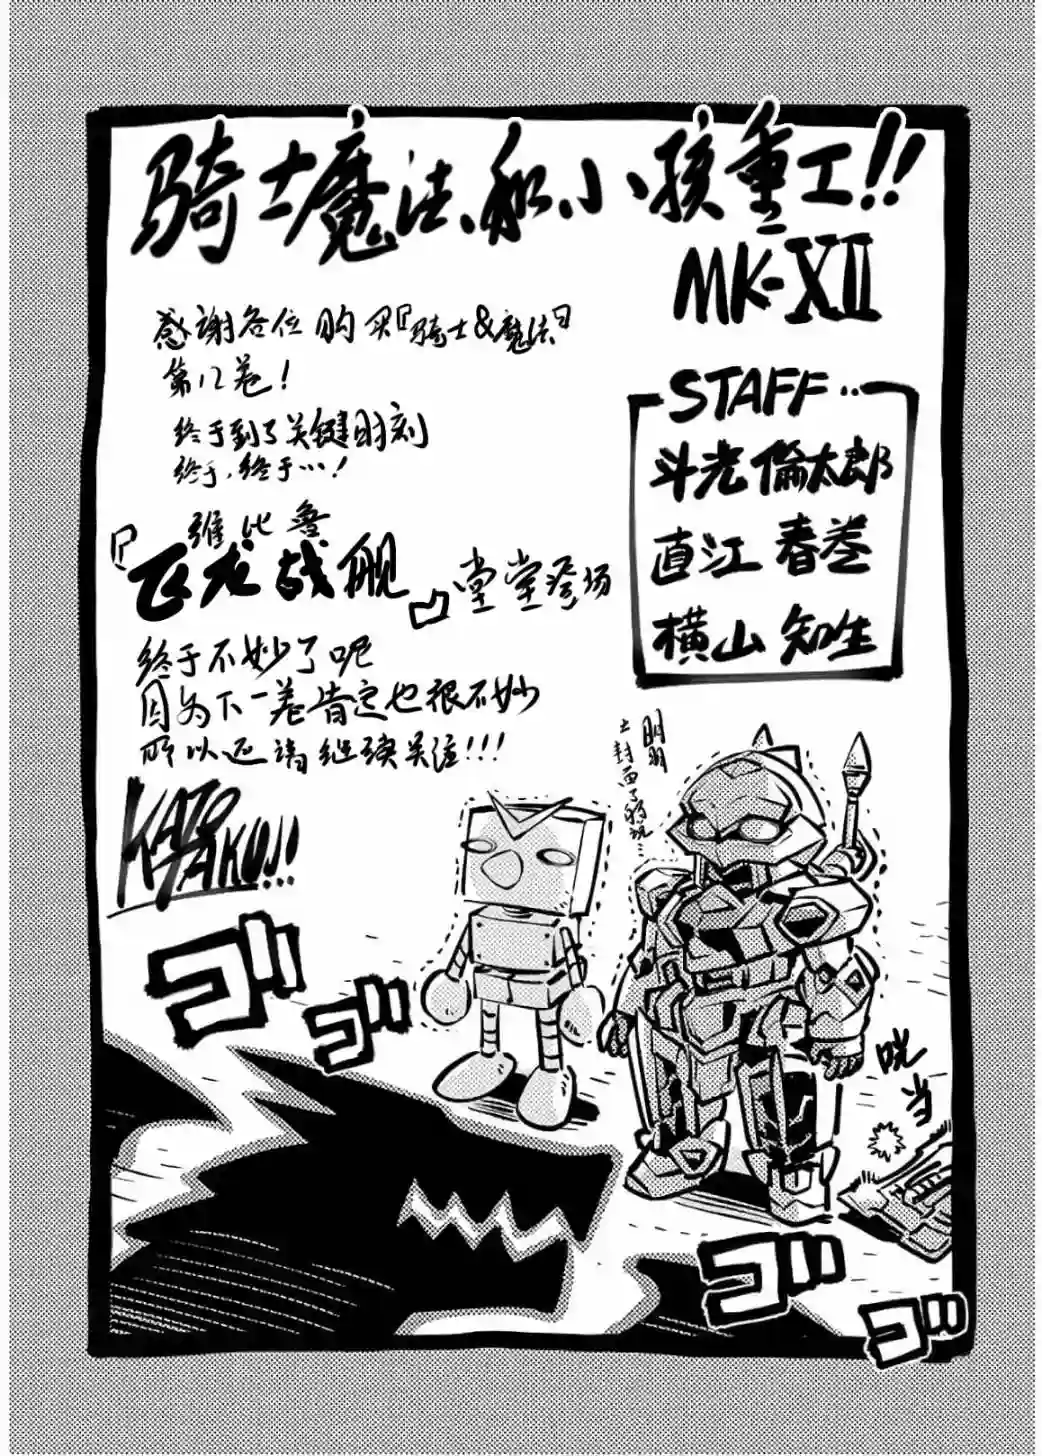 骑士魔法和小孩重工!!
MK-XII
感谢各位购买『骑士&魔法』
第12卷!
终于到了关键时刻
终于,终于…!
维比鲁
『飞龙战舰』堂堂登场
终于不妙了呢
因为下一卷肯定也很不妙
所以还请继续关注!!!
KATO
TAKU!!
STAFF
斗光倫太郎
直江 春巻
横山 知生
明明
上封面了的说…
ゴゴ
咣当
ゴゴ